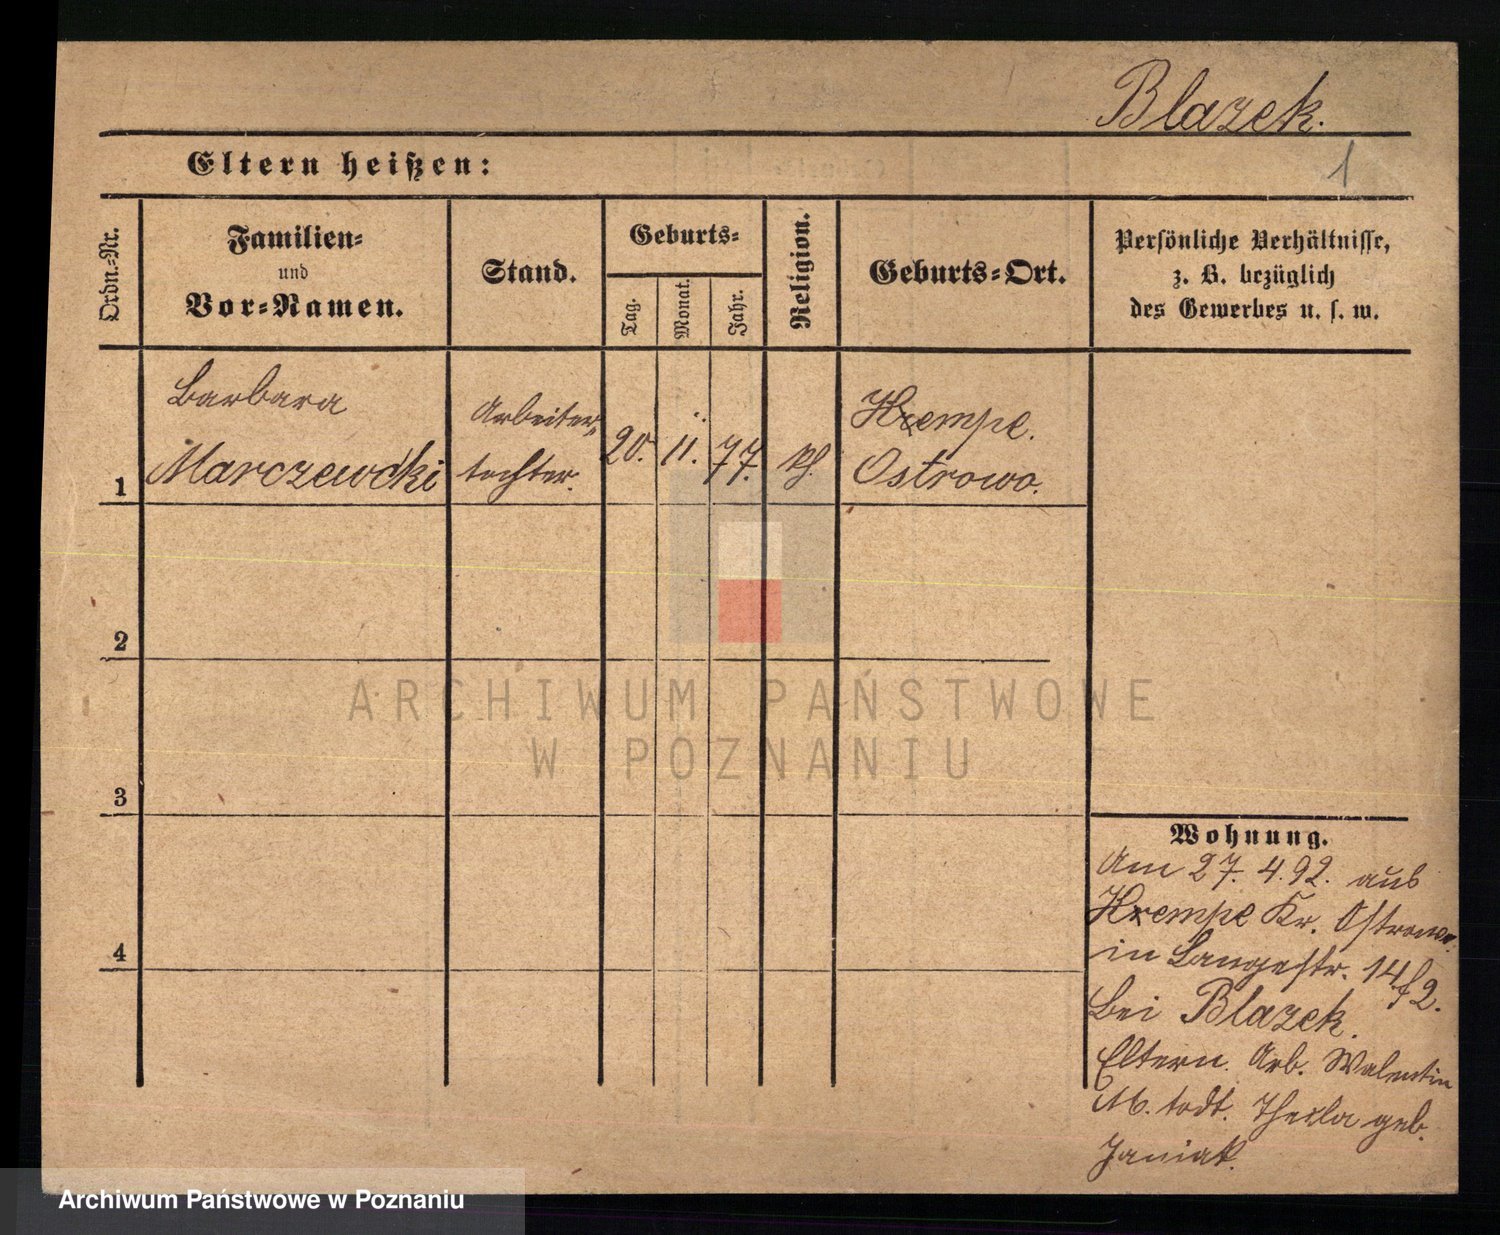 Blazek.
1
Eltern heißen:
Ordn.-Nr.
Familien-
und
Vor-Namen.
Stand.
Geburts-
Tag.
Monat.
Jahr.
Religion.
Geburts-Ort.
Persönliche Verhältnisse,
z. B. bezüglich
des Gewerbes u. s. w.
Barbara
Marczewski
Arbeiter-
tochter.
20. 11. 77. kh.
Krempe.
Ostrowo.
1
2
3
4
ARCHIWUM PAŃSTWOWE
W POZNANIU
Wohnung.
Am 27. 4. 92. aus
Krempe Kr. Ostrowo.
in Langestr. 14/2.
bei Blazek.
Eltern. Arb. Walentin
M. todt. Thekla geb.
Janiak.
Archiwum Państwowe w Poznaniu